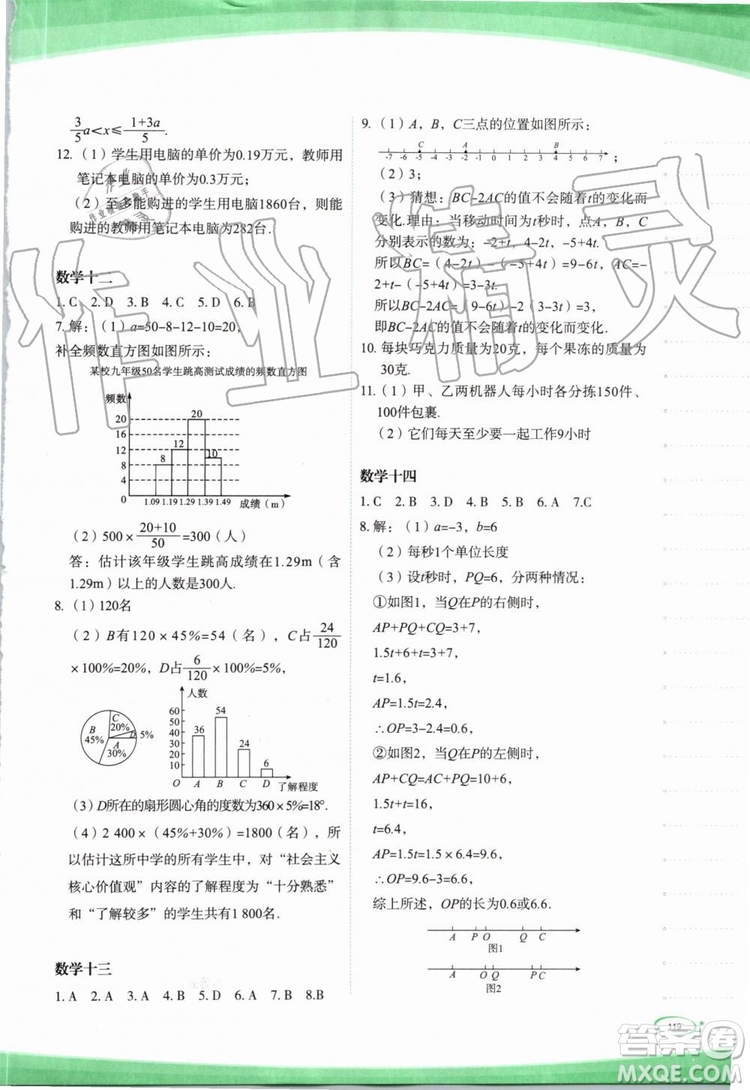 3/5 a<x≤(1+3a)/5.
12.（1）学生用电脑的单价为0.19万元，教师用
笔记本电脑的单价为0.3万元；
（2）至多能购进的学生用电脑1860台，则能
购进的教师用笔记本电脑为282台.
数学十二
1. C  2. D  3. B  4. C  5. D  6. B
7. 解：（1）a=50-8-12-10=20，
补全频数直方图如图所示：
某校九年级50名学生跳高测试成绩的频数直方图
频数
20 18 16 14 12 10 8 6 4 2 0
8 12 20 10
1.09 1.19 1.29 1.39 1.49 成绩（m）
（2）500×(20+10)/50=300（人）
答：估计该年级学生跳高成绩在1.29m（含
1.29m）以上的人数是300人.
8.（1）120名
（2）B有120×45%=54（名），C占24/120
×100%=20%，D占6/120×100%=5%，
B 45% C 20% D 5% A 30%
人数
60 50 40 30 20 10
36 54 24 6
O A B C D 了解程度
（3）D所在的扇形圆心角的度数为360×5%=18°.
（4）2 400×（45%+30%）=1800（名），所
以估计这所中学的所有学生中，对“社会主义
核心价值观”内容的了解程度为“十分熟悉”
和“了解较多”的学生共有1 800名.
数学十三
1. A  2. A  3. A  4. B  5. D  6. A  7. B  8. B
9.（1）A，B，C三点的位置如图所示：
A B C
-7 -6 -5 -4 -3 -2 -1 0 1 2 3 4 5 6 7 ；
（2）3；
（3）猜想：BC-2AC的值不会随着t的变化而
变化.理由：当移动时间为t秒时，点A、B、C
分别表示的数为：-2+t，4-2t，-5-5t，
所以BC=（4-2t）-（-5-5t）=9-6t，AC=
-2+t-（-5-5t）=3-3t.
所以BC-2AC=（9-6t）-2（3-3t）=3，
即BC-2AC的值不会随着t的变化而变化.
10. 每块巧克力质量为20克，每个果冻的质量为
30克.
11.（1）甲、乙两机器人每小时各分拣150件、
100件包裹.
（2）它们每天至少要一起工作9小时
数学十四
1. C  2. B  3. D  4. B  5. B  6. A  7. C
8. 解：（1）a=-3，b=6
（2）每秒1个单位长度
（3）设t秒时，PQ=6，分两种情况：
①如图1，当Q在P的右侧时，
AP+PQ+CQ=3+7，
1.5t+6+t=10，
t=1.6，
AP=1.5t=2.4，
∴OP=3-2.4=0.6.
②如图2，当Q在P的左侧时，
AP+CQ=AC+PQ=10+6，
1.5t+t=16，
t=6.4，
AP=1.5t=1.5×6.4=9.6，
∴OP=9.6-3=6.6.
综上所述，OP的长为0.6或6.6.
A P O Q C
图1
A O Q P C
图2
119
作业精灵
答案圈
MXQE.COM